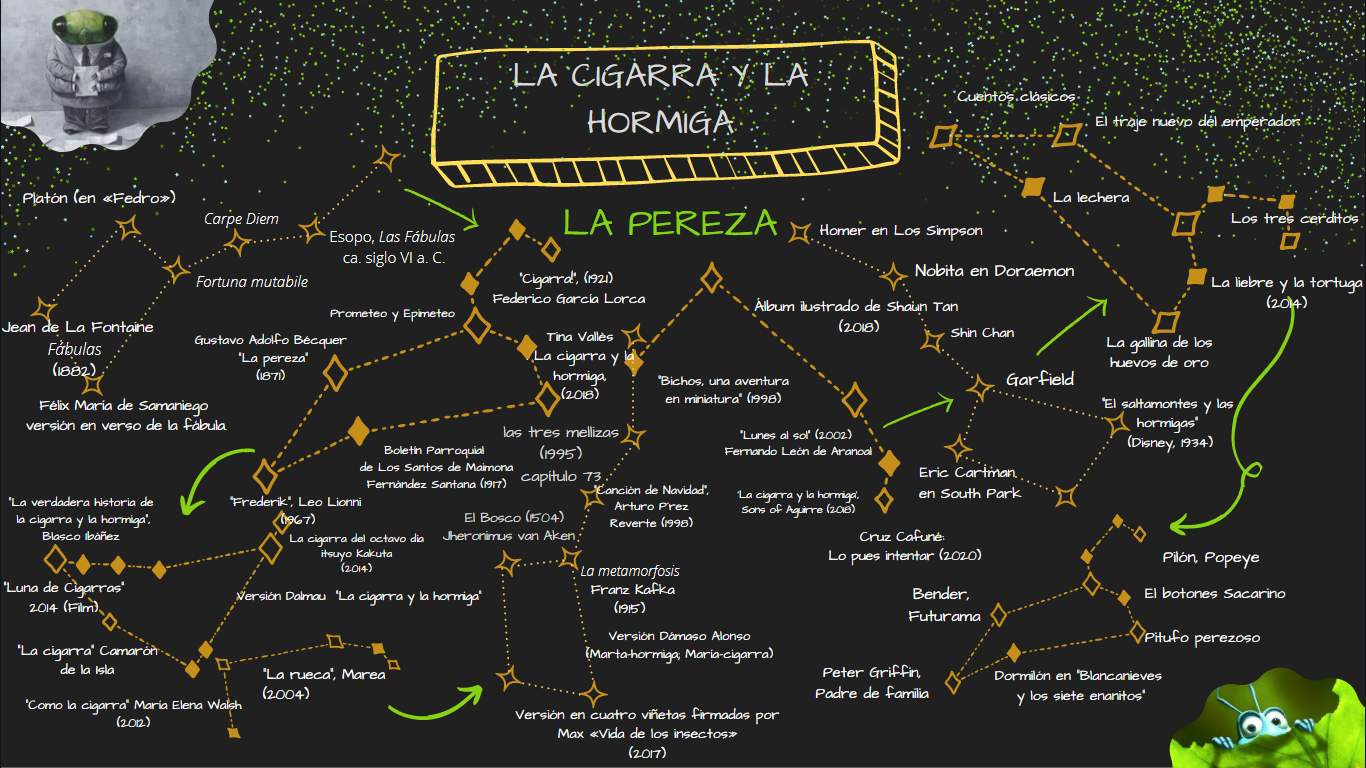 LA CIGARRA Y LA
HORMIGA
LA PEREZA
Platón (en «Fedro»)
Carpe Diem
Fortuna mutabile
Esopo, Las Fábulas
ca. siglo VI a. C.
Jean de La Fontaine
Fábulas
(1882)
Félix María de Samaniego
versión en verso de la fábula.
Prometeo y Epimeteo
Gustavo Adolfo Bécquer
"La pereza"
(1871)
"Cigarra!", (1921)
Federico García Lorca
Tina Vallès
La cigarra y la
hormiga,
(2018)
Boletín Parroquial
de Los Santos de Maimona
Fernández Santana (1917)
las tres mellizas
(1995)
capítulo 73
"Frederik", Leo Lionni
(1967)
"La verdadera historia de
la cigarra y la hormiga",
Blasco Ibáñez
La cigarra del octavo día
Itsuyo Kakuta
(2014)
"Luna de Cigarras"
2014 (Film)
Versión Dalmau "La cigarra y la hormiga"
"La cigarra" Camarón
de la Isla
"Como la cigarra" María Elena Walsh
(2012)
"La rueca", Marea
(2004)
El Bosco (1504)
Jheronimus van Aken
"Canción de Navidad",
Arturo P'rez
Reverte (1998)
La metamorfosis
Franz Kafka
(1915)
Versión Dámaso Alonso
(Marta-hormiga; María-cigarra)
Versión en cuatro viñetas firmadas por
Max «Vida de los insectos»
(2017)
"Bichos, una aventura
en miniatura" (1998)
"Lunes al sol" (2002)
Fernando León de Aranoal
"La cigarra y la hormiga",
Sons of Aguirre (2018)
Cruz Cafuné:
Lo pues intentar (2020)
Homer en Los Simpson
Nobita en Doraemon
Álbum ilustrado de Shaun Tan
(2018)
Shin Chan
Garfield
"El saltamontes y las
hormigas"
(Disney, 1934)
Eric Cartman
en South Park
Cuentos clásicos
El traje nuevo del emperador
La lechera
Los tres cerditos
La liebre y la tortuga
(2014)
La gallina de los
huevos de oro
Pilón, Popeye
El botones Sacarino
Bender,
Futurama
Pitufo perezoso
Peter Griffin,
Padre de familia
Dormilón en "Blancanieves
y los siete enanitos"